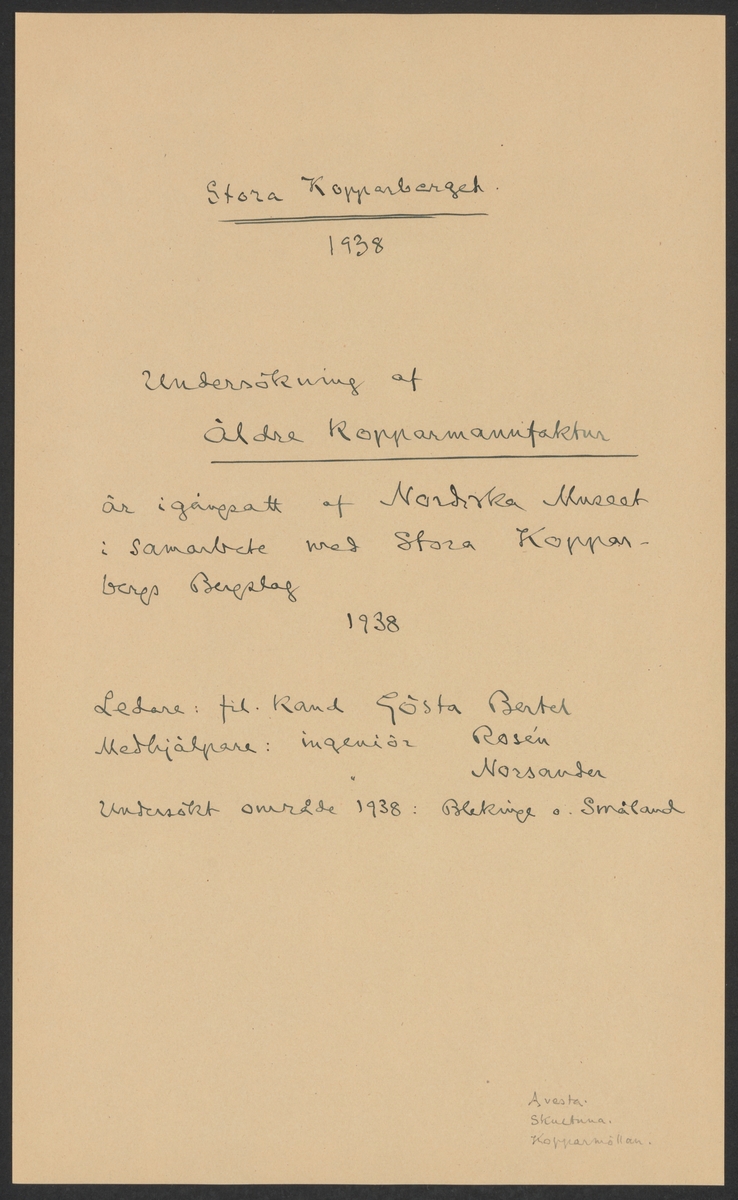 Stora Kopparberget.
1938
Undersökning af
Äldre Kopparmannifaktur
är igångsatt af Nordiska Museet
i samarbete med Stora Koppar-
bergs Bergslag
1938
Ledare: fil. kand Gösta Bertel
Medhjälpare: ingeniör Rosén
" Norsander
Undersökt område 1938: Blekinge o. Småland
Avesta.
Skultuna.
Kopparmöllan.